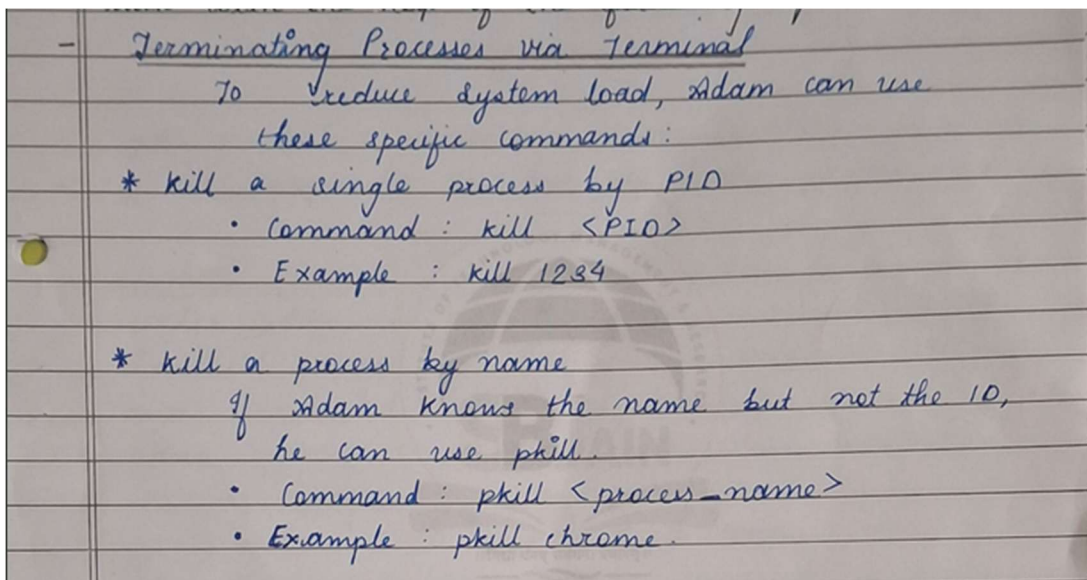 - Terminating Processes via Terminal
To reduce system load, Adam can use
these specific commands:
* kill a single process by PID
• Command : kill <PID>
• Example : kill 1234
* kill a process by name
If Adam knows the name but not the ID,
he can use pkill.
• Command : pkill <process_name>
• Example : pkill chrome.